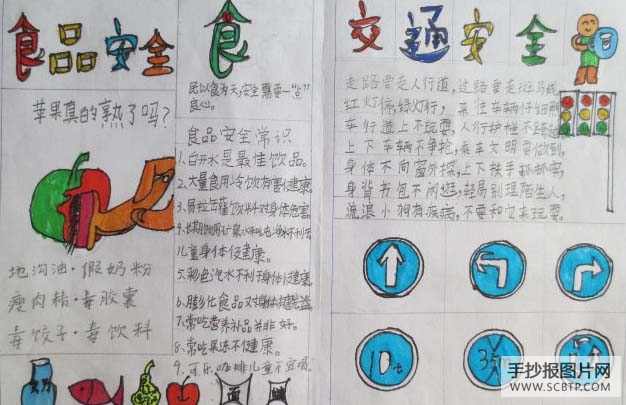 食品安全
苹果真的熟了吗?
地沟油·假奶粉
瘦肉精·毒胶囊
毒饺子·毒饮料
食
民以食为天,安全需要一"点"
良心。
食品安全常识
1.白开水是最佳饮品。
2.大量食用冷饮有害健康
3.易拉罐饮料对身体危害。
儿童身体健康。
5.彩色汽水不利于身体健康。
6.膨化食品
7.常吃营养补品并非好。
8.常吃果冻不健康。
9.可乐、咖啡儿童不宜喝。
交通安全
走路要走人行道,过路要走斑马线,
红灯停,绿灯行,来往车辆仔细瞧
车行道上不玩耍,人行护栏不跨越
上下车辆不争抢,乘车文明要做到,
身体不向窗外探,上下扶手抓抓牢,
身背书包不闲逛,轻易别理陌生人,
流浪小狗有疾病,不要和它来玩耍。
10t
手抄报图片网
WWW.SCBTP.COM